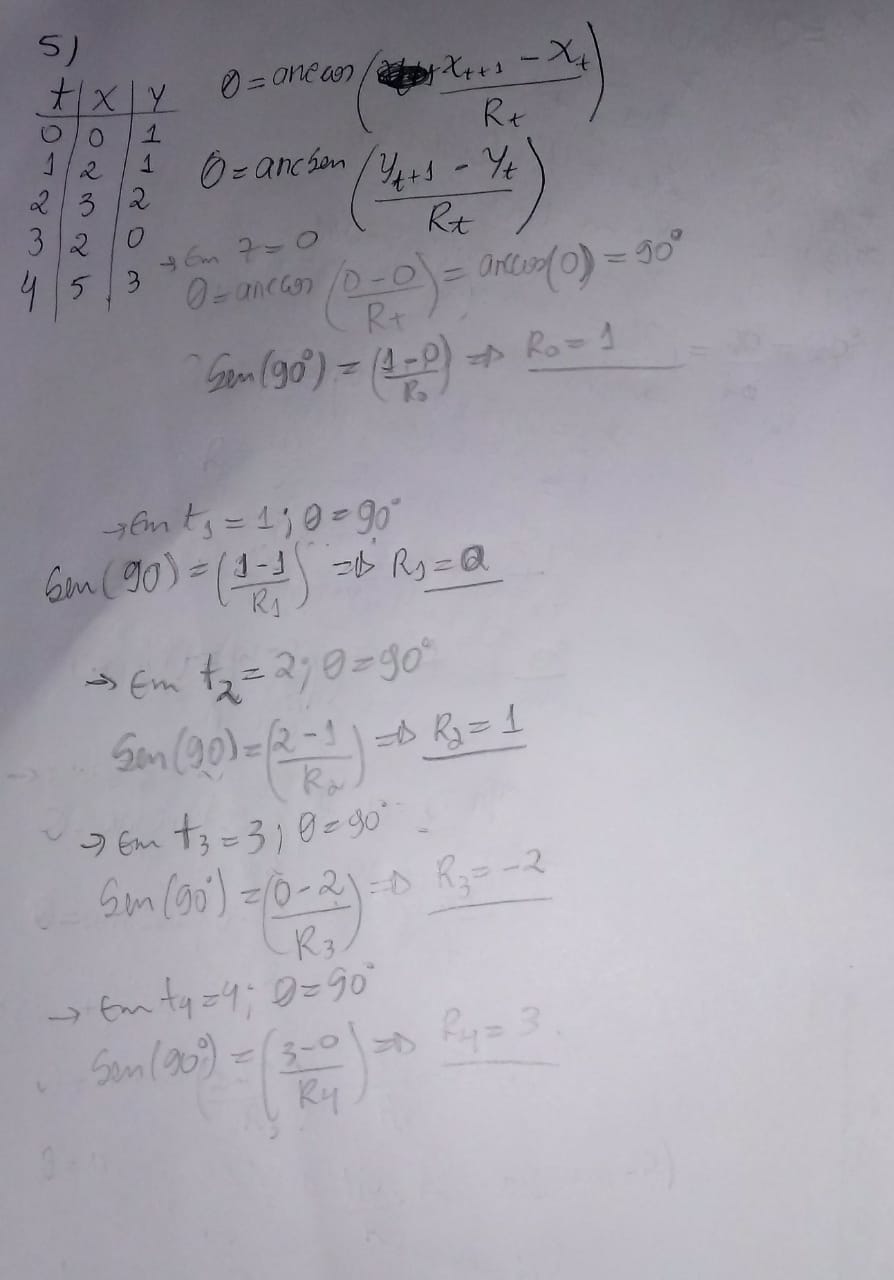 5)
t | x | y
0 | 0 | 1
1 | 2 | 1
2 | 3 | 2
3 | 2 | 0
4 | 5 | 3
θ = arccos (x_{t+1} - x_t / R_t)
θ = arcsen (y_{t+1} - y_t / R_t)
→ Em t = 0
θ = arccos (0 - 0 / R_t) = arccos(0) = 90°
Sen(90°) = (1 - 0 / R_0) ⇒ R_0 = 1
→ Em t_1 = 1; θ = 90°
Sen(90) = (1 - 1 / R_1) ⇒ R_1 =
→ Em t_2 = 2; θ = 90°
Sen(90) = (2 - 1 / R_2) ⇒ R_2 = 1
→ Em t_3 = 3; θ = 90°
Sen(90°) = (0 - 2 / R_3) ⇒ R_3 = -2
→ Em t_4 = 4; θ = 90°
Sen(90°) = (3 - 0 / R_4) ⇒ R_4 = 3